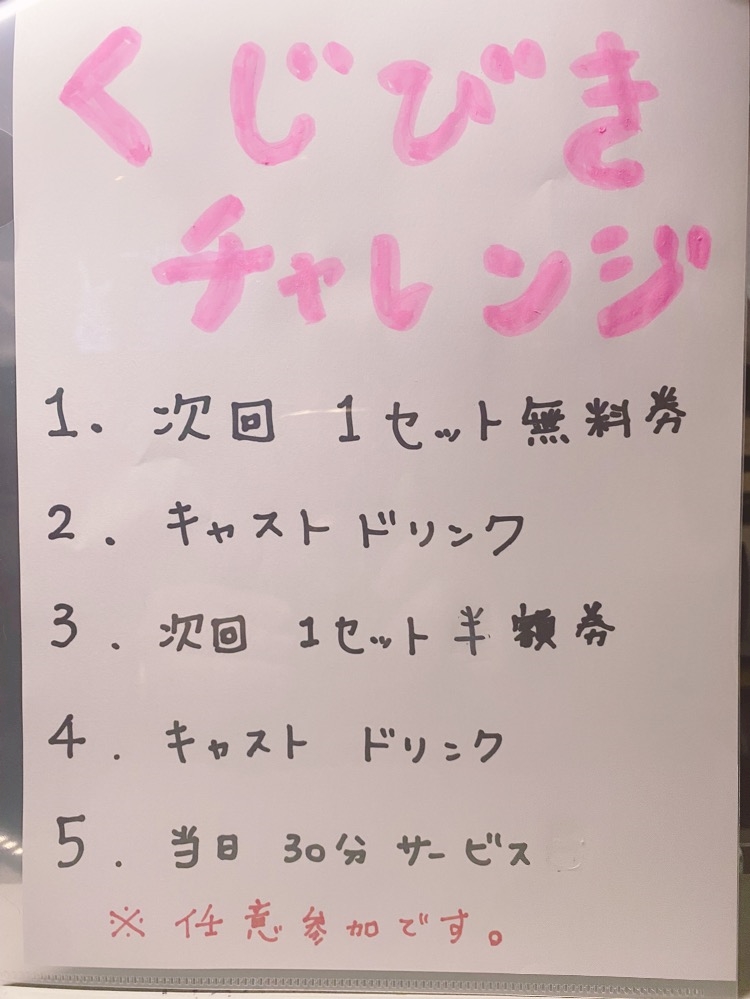 くじびき
チャレンジ
1. 次回 1セット無料券
2. キャストドリンク
3. 次回 1セット半額券
4. キャスト ドリンク
5. 当日 30分 サービス
※ 任意参加です。